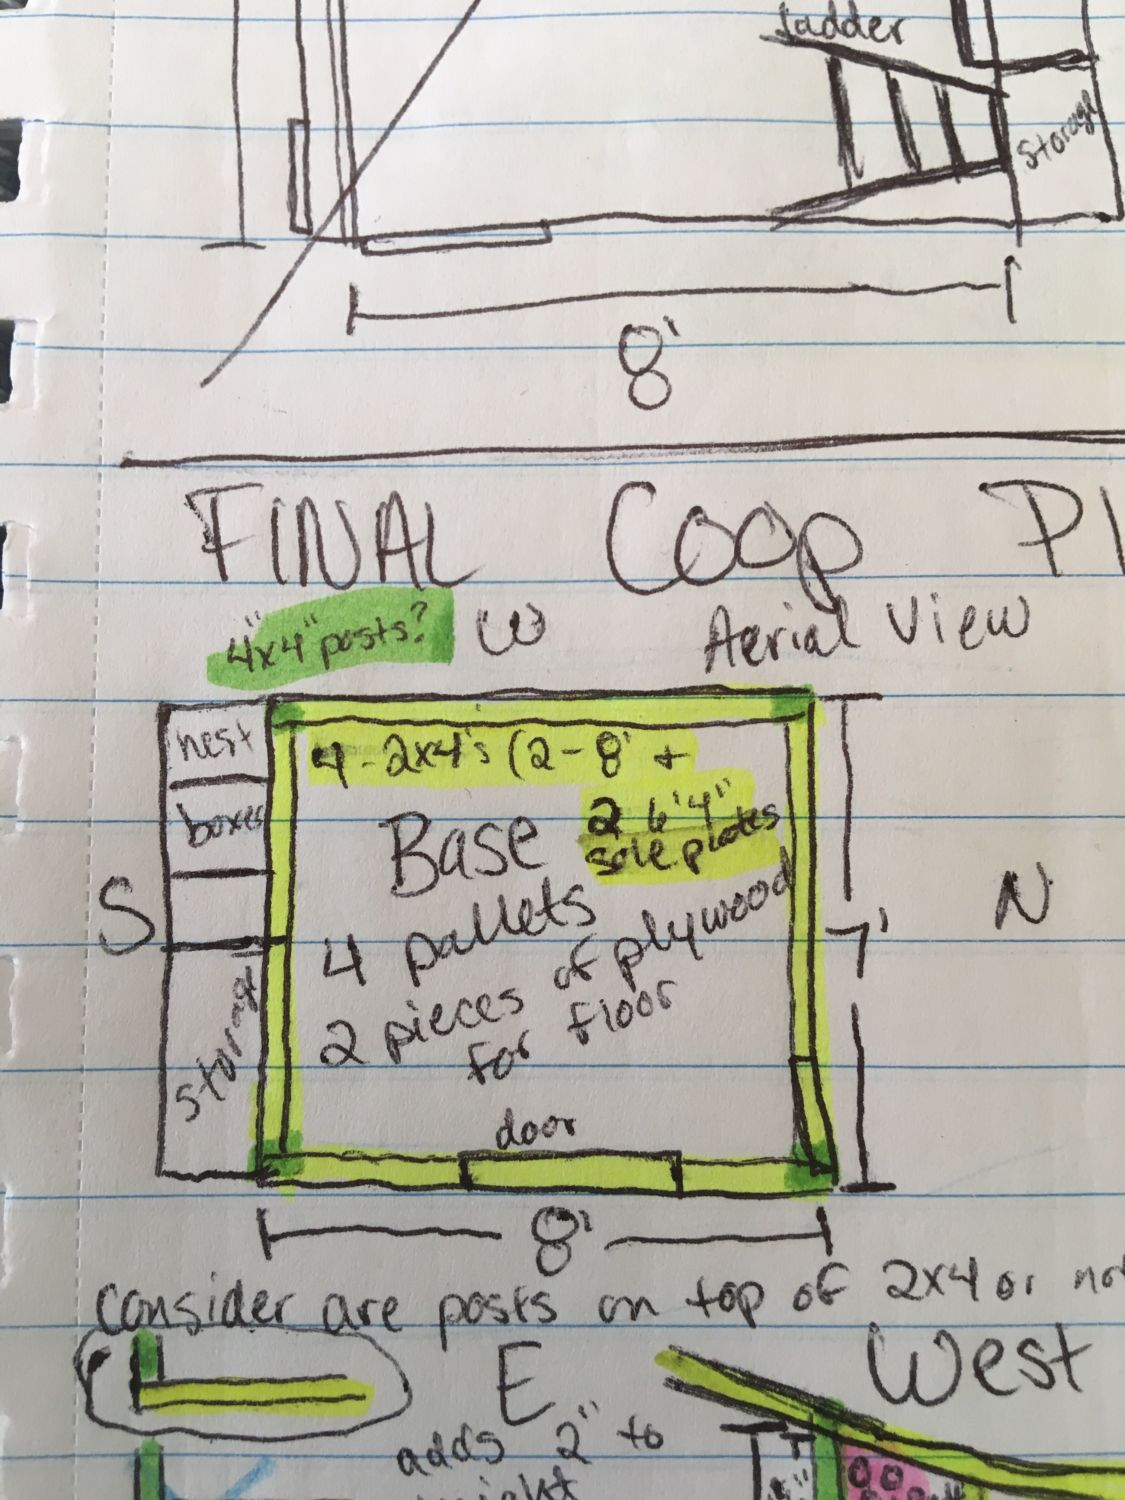 ladder
storage
8'
FINAL Coop Pl
4"x4" posts? W Aerial View
nest
boxes
storage
4-2x4's (2-8' +
2 6'4"
sole plates
Base
4 pallets
2 pieces of plywood
for floor
door
S
N
7'
8'
Consider are posts on top of 2x4 or not
E
West
adds 2" to